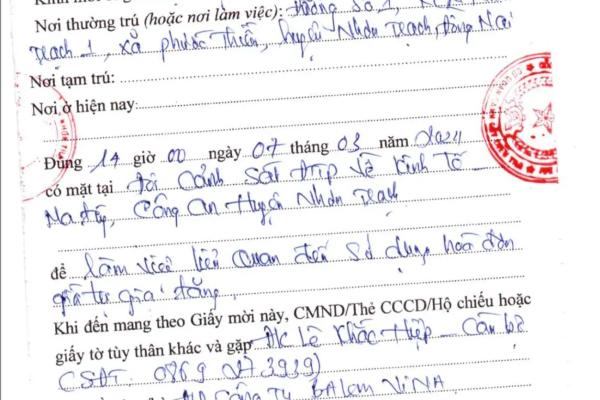 Nơi thường trú (hoặc nơi làm việc): Đường Số 1,
Trạch 1, xã Phước Thiền, huyện Nhơn Trạch, Đồng Nai
Nơi tạm trú:
Nơi ở hiện nay:
Đúng 14 giờ 00 ngày 07 tháng 03 năm 2024
có mặt tại Đội Cảnh Sát ĐTTP Về Kinh Tế
Ma túy, Công An Huyện Nhơn Trạch
để làm việc liên quan đến sử dụng hoá đơn
giá trị gia tăng,
Khi đến mang theo Giấy mời này, CMND/Thẻ CCCD/Hộ chiếu hoặc
giấy tờ tùy thân khác và gặp Đ/c Lê Khắc Hiệp - Cán bộ
CSĐT. 0869 3939)
Công Ty VINA